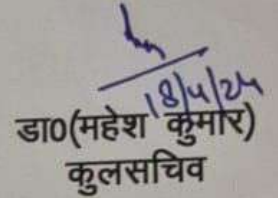 18/4/24
डा0(महेश कुमार)
कुलसचिव